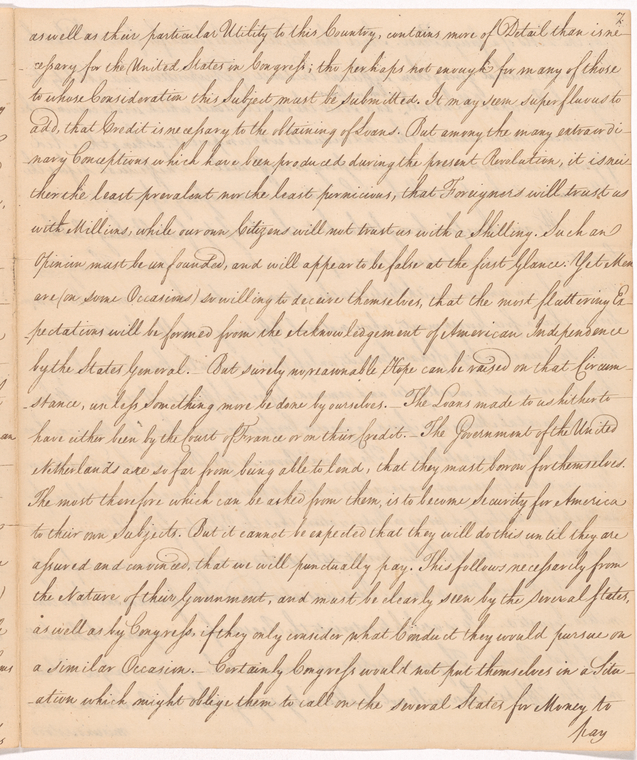 2
as well as their particular Utility to this Country, contains more of Detail than is ne-
-cessary for the United States in Congress; tho perhaps not enough for many of those
to whose Consideration this Subject must be submitted. It may seem superfluous to
add, that Credit is necessary to the obtaining of Loans. But among the many extraordi-
nary Conceptions which have been produced during the present Revolution, it is nei-
ther the least prevalent nor the least pernicious, that Foreigners will trust us
with Millions, while our own Citizens will not trust us with a Shilling. Such an
Opinion must be unfounded, and will appear to be false at the first Glance. Yet Men
are (on some Occasions) so willing to deceive themselves, that the most flattering Ex-
-pectations will be formed from the Acknowledgement of American Independence
by the States General. - But surely no reasonable Hope can be raised on that Circum-
-stance, unless something more be done by ourselves. - The Loans made to us hither to
have either been by the Court of France or on their Credit. - The Government of the United
Netherlands are so far from being able to lend, that they must borrow for themselves.
The most therefore which can be asked from them, is to become Security for America
to their own Subjects. But it cannot be expected that they will do this until they are
assured and convinced, that we will punctually pay. This follows necessarily from
the Nature of their Government, and must be clearly seen by the several States,
as well as by Congress, if they only consider what Conduct they would pursue on
a similar Occasion. - Certainly Congress would not put themselves in a Situ-
-ation which might oblige them to call on the several States for Money to
pay